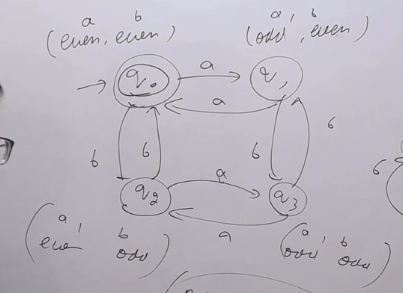 a b a, b
(even, even) (odd, even)
q0 a q1
a
b b b b
6
q2 a q3
a
a, b a, b
(even odd) (odd odd)